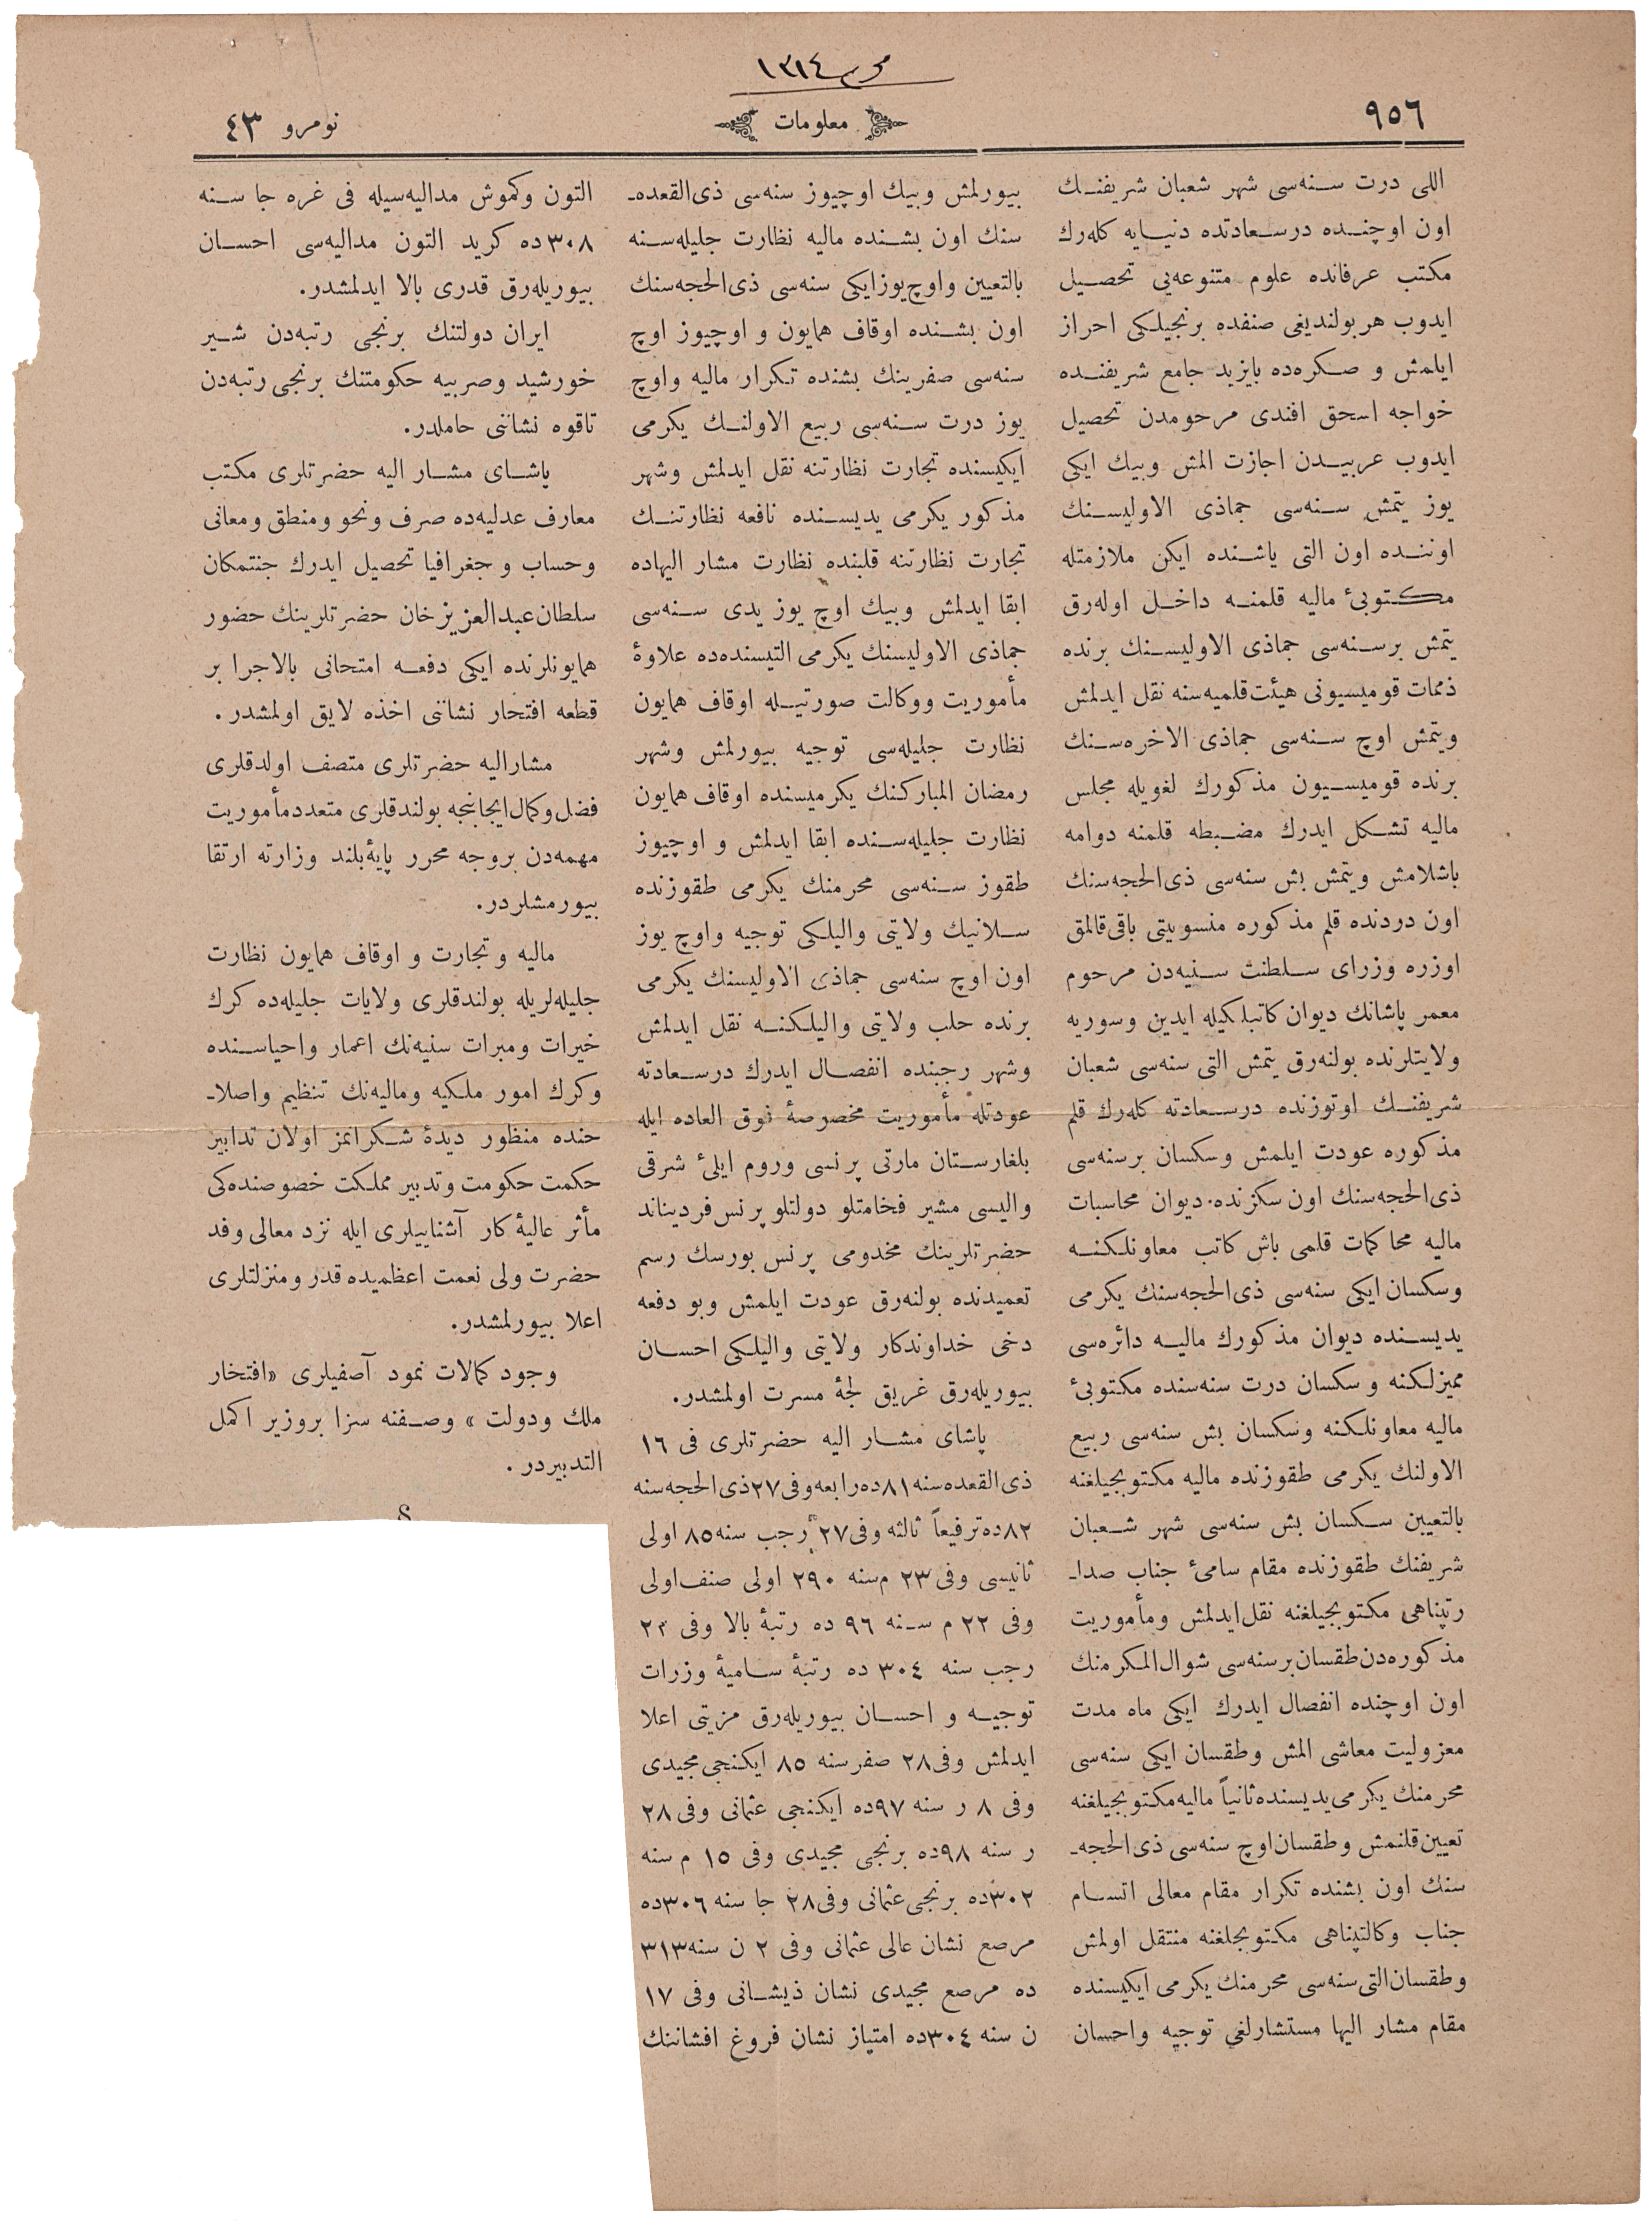 محرم ١٣١٤
٩٥٦
معلومات
نومرو ٤٣
اللى درت سنه‌سى شهر شعبان شريفنك
اون اوچنده درسعادتده دنيايه كله‌رك
مكتب عرفانده علوم متنوعه‌يى تحصيل
ايدوب هر بولنديغى صنفده برنجيلكى احراز
ايلمش و صكره‌ده بايزيد جامع شريفنده
خواجه اسحق افندى مرحومدن تحصيل
ايدوب عربيدن اجازت المش وبيك ايكى
يوز يتمش سنه‌سى جماذى الاوليسنك
اوننده اون التى ياشنده ايكن ملازمتله
مكتوبئ ماليه قلمنه داخل اوله‌رق
يتمش برسنه‌سى جماذى الاوليسنك برنده
ذممات قوميسيونى هيئت قلميه‌سنه نقل ايدلمش
ويتمش اوچ سنه‌سى جماذى الاخره‌سنك
برنده قوميسيون مذكورك لغويله مجلس
ماليه تشكل ايدرك مضبطه قلمنه دوامه
باشلامش ويتمش بش سنه‌سى ذى الحجه‌سنك
اون دردنده قلم مذكوره منسوبيتى باقى قالمق
اوزره وزراى سلطنت سنيه‌دن مرحوم
معمر پاشانك ديوان كاتبلكيله ايدين وسوريه
ولايتلرنده بولنه‌رق يتمش التى سنه‌سى شعبان
شريفنك اوتوزنده درسعادته كله‌رك قلم
مذكوره عودت ايلمش وسكسان برسنه‌سى
ذى الحجه‌سنك اون سكزنده ديوان محاسبات
ماليه محاكمات قلمى باش كاتب معاونلكنه
وسكسان ايكى سنه‌سى ذى الحجه‌سنك يكرمى
يديسنده ديوان مذكورك ماليه دائره‌سى
مميزلكنه وسكسان درت سنه‌سنده مكتوبئ
ماليه معاونلكنه وسكسان بش سنه‌سى ربيع
الاولنك يكرمى طقوزنده ماليه مكتوبجيلغنه
بالتعيين سكسان بش سنه‌سى شهر شعبان
شريفنك طقوزنده مقام سامئ جناب صدا-
رتپناهى مكتوبجيلغنه نقل ايدلمش ومأموريت
مذكوره‌دن طقسان برسنه‌سى شوال المكرمنك
اون اوچنده انفصال ايدرك ايكى ماه مدت
معزوليت معاشى المش وطقسان ايكى سنه‌سى
محرمنك يكرمى يديسنده ثانياً ماليه مكتوبجيلغنه
تعيين قلنمش وطقسان اوچ سنه‌سى ذى الحجه-
سنك اون بشنده تكرار مقام معالى اتسام
جناب وكالتپناهى مكتوبجلغنه منتقل اولمش
وطقسان التى سنه‌سى محرمنك يكرمى ايكيسنده
مقام مشار اليها مستشارلغى توجيه واحسان
بيورلمش وبيك اوچيوز سنه‌سى ذى القعده-
سنك اون بشنده ماليه نظارت جليله‌سنه
بالتعيين واوچ يوز ايكى سنه‌سى ذى الحجه‌سنك
اون بشنده اوقاف همايون و اوچيوز اوچ
سنه‌سى صفرينك بشنده تكرار ماليه واوچ
يوز درت سنه‌سى ربيع الاولنك يكرمى
ايكيسنده تجارت نظارتنه نقل ايدلمش وشهر
مذكور يكرمى يديسنده نافعه نظارتنك
تجارت نظارتنه قلبنده نظارت مشار اليهاده
ابقا ايدلمش وبيك اوچ يوز يدى سنه‌سى
جماذى الاوليسنك يكرمى التيسنده‌ده علاوۀ
مأموريت ووكالت صورتيله اوقاف همايون
نظارت جليله‌سى توجيه بيورلمش وشهر
رمضان المباركنك يكرميسنده اوقاف همايون
نظارت جليله‌سنده ابقا ايدلمش و اوچيوز
طقوز سنه‌سى محرمنك يكرمى طقوزنده
سلانيك ولايتى واليلكى توجيه واوچ يوز
اون اوچ سنه‌سى جماذى الاوليسنك يكرمى
برنده حلب ولايتى واليلكنه نقل ايدلمش
وشهر رجبنده انفصال ايدرك درسعادته
عودتله مأموريت مخصوصۀ فوق العاده ايله
بلغارستان مارتى پرنسى وروم ايلئ شرقى
واليسى مشير فخامتلو دولتلو پرنس فرديناند
حضرتلرينك مخدومى پرنس بورسك رسم
تعميدنده بولنه‌رق عودت ايلمش وبو دفعه
دخى خداوندكار ولايتى واليلكى احسان
بيوريله‌رق غريق لجۀ مسرت اولمشدر.
پاشاى مشار اليه حضرتلرى فى ١٦
ذى القعده سنه ٨١ده رابعه وفى ٢٧ ذى الحجه سنه
٨٢ده ترفيعاً ثالثه وفى ٢٧ رجب سنه ٨٥ اولى
ثانيسى وفى ٢٣ م سنه ٢٩٠ اولى صنف اولى
وفى ٢٢ م سنه ٩٦ ده رتبۀ بالا وفى ٢٢
رجب سنه ٣٠٤ ده رتبۀ ساميۀ وزرات
توجيه و احسان بيوريله‌رق مزيتى اعلا
ايدلمش وفى ٢٨ صفر سنه ٨٥ ايكنجى مجيدى
وفى ٨ ر سنه ٩٧ده ايكنجى عثمانى وفى ٢٨
ر سنه ٩٨ده برنجى مجيدى وفى ١٥ م سنه
٣٠٢ده برنجى عثمانى وفى ٢٨ جا سنه ٣٠٦ده
مرصع نشان عالى عثمانى وفى ٢ ن سنه ٣١٣
ده مرصع مجيدى نشان ذيشانى وفى ١٧
ن سنه ٣٠٤ده امتياز نشان فروغ افشاننك
التون وكموش مداليه‌سيله فى غره جا سنه
٣٠٨ده كريد التون مداليه‌سى احسان
بيوريله‌رق قدرى بالا ايدلمشدر.
ايران دولتنك برنجى رتبه‌دن شير
خورشيد وصربيه حكومتنك برنجى رتبه‌دن
تاقوه نشاننى حاملدر.
پاشاى مشار اليه حضرتلرى مكتب
معارف عدليه‌ده صرف ونحو ومنطق ومعانى
وحساب و جغرافيا تحصيل ايدرك جنتمكان
سلطان عبدالعزيز خان حضرتلرينك حضور
همايونلرنده ايكى دفعه امتحانى بالاجرا بر
قطعه افتخار نشاننى اخذه لايق اولمشدر.
مشاراليه حضرتلرى متصف اولدقلرى
فضل وكمال ايجابنجه بولندقلرى متعدد مأموريت
مهمه‌دن بروجه محرر پايۀ بلند وزارته ارتقا
بيورمشلردر.
ماليه و تجارت و اوقاف همايون نظارت
جليله‌لريله بولندقلرى ولايات جليله‌ده كرك
خيرات ومبرات سنيه‌نك اعمار واحياسنده
وكرك امور ملكيه وماليه‌نك تنظيم واصلا-
حنده منظور ديدۀ شكرانمز اولان تدابير
حكمت حكومت وتدبير مملكت خصوصنده‌كى
مأثر عاليۀ كار آشناييلرى ايله نزد معالى وفد
حضرت ولى نعمت اعظميده قدر ومنزلتلرى
اعلا بيورلمشدر.
وجود كمالات نمود آصفيلرى «افتخار
ملك ودولت» وصفنه سزا بروزير اكمل
التدبيردر.